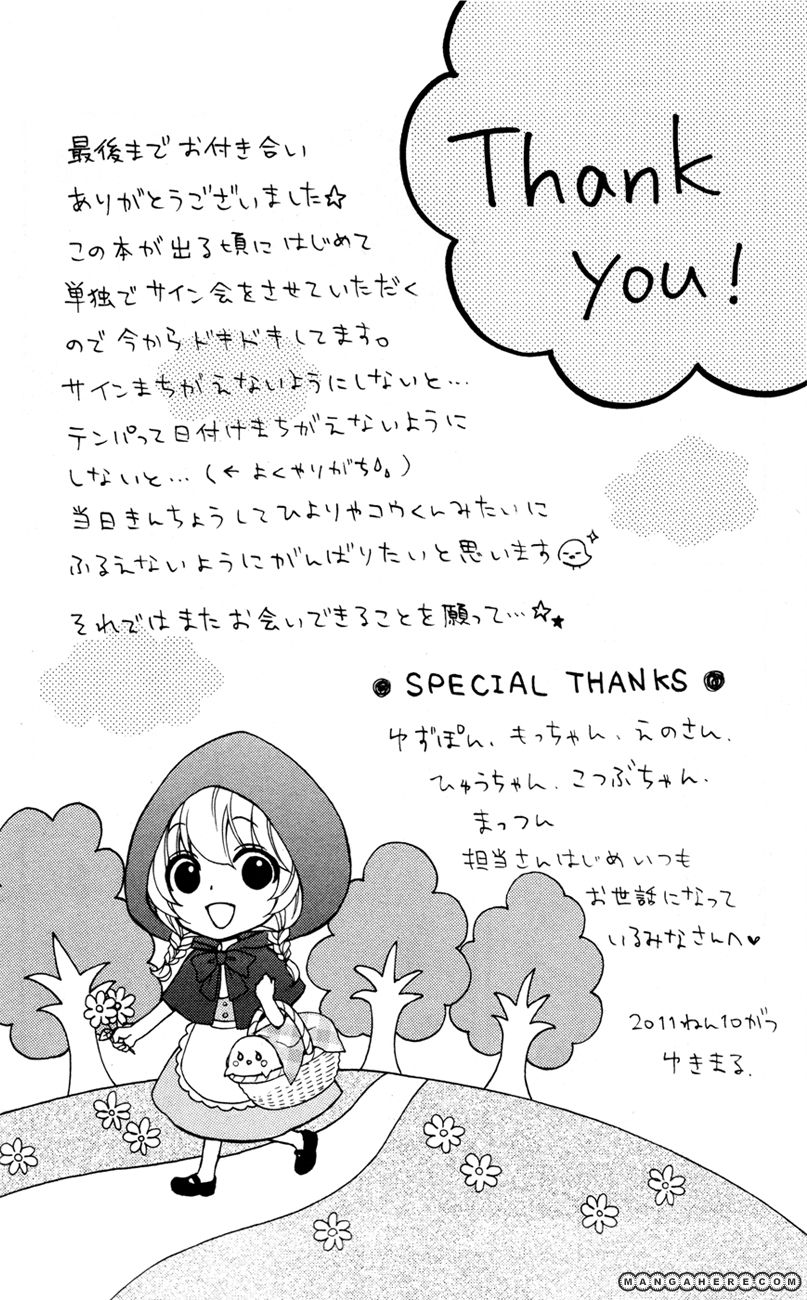 Thank
you!
最後まで お付き合い
ありがとうございました☆
この本が出る頃に はじめて
単独で サイン会をさせていただく
ので 今から ドキドキしてます。
サインまちがえないようにしないと…
テンパって日付けまちがえないように
しないと…(← よくやりがち)
当日きんちょうしてひよりやコウくんみたいに
ふるえないようにがんばりたいと思います
それではまたお会いできることを願って…☆★
SPECIAL THANKS
ゆずぽん、もっちゃん、えのさん、
ひゅうちゃん、こつぶちゃん、
まっつん
担当さんはじめ いつも
お世話になって
いるみなさんへ♥
2011ねん10がつ
ゆきまる.
MANGAHERE.COM